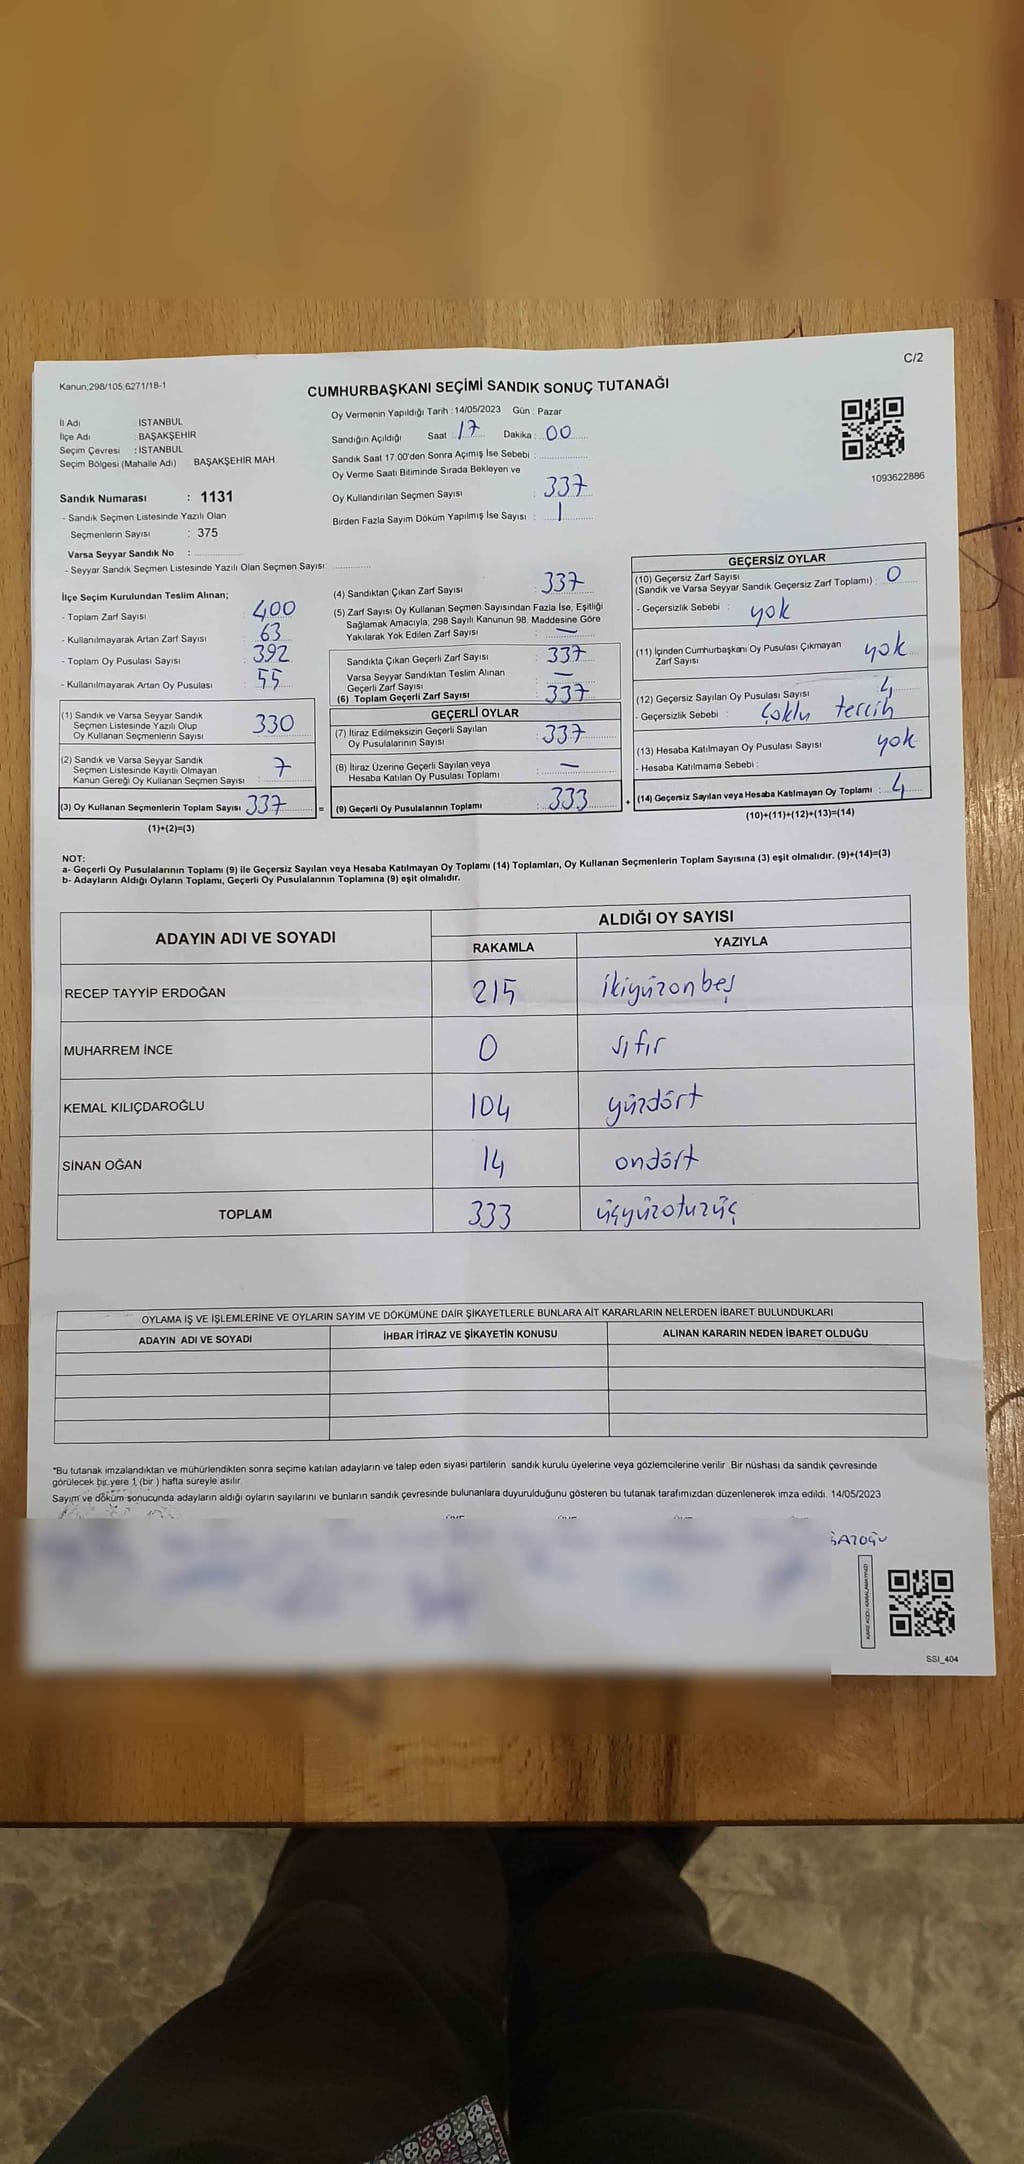 C/2
Kanun;298/105,6271/18-1
CUMHURBAŞKANI SEÇİMİ SANDIK SONUÇ TUTANAĞI
İl Adı : İSTANBUL
İlçe Adı : BAŞAKŞEHİR
Seçim Çevresi : İSTANBUL
Seçim Bölgesi (Mahalle Adı) : BAŞAKŞEHİR MAH.
Sandık Numarası : 1131
- Sandık Seçmen Listesinde Yazılı Olan
Seçmenlerin Sayısı : 375
Varsa Seyyar Sandık No :
- Seyyar Sandık Seçmen Listesinde Yazılı Olan Seçmen Sayısı:
Oy Vermenin Yapıldığı Tarih : 14/05/2023 Gün : Pazar
Sandığın Açıldığı Saat : 17 Dakika : 00
Sandık Saat 17:00'den Sonra Açımış İse Sebebi :
Oy Verme Saati Bitiminde Sırada Bekleyen ve
Oy Kullandırılan Seçmen Sayısı : 337
Birden Fazla Sayım Döküm Yapılmış İse Sayısı : 1
1093622886
İlçe Seçim Kurulundan Teslim Alınan;
- Toplam Zarf Sayısı : 400
- Kullanılmayarak Artan Zarf Sayısı : 63
- Toplam Oy Pusulası Sayısı : 392
- Kullanılmayarak Artan Oy Pusulası : 55
(1) Sandık ve Varsa Seyyar Sandık
Seçmen Listesinde Yazılı Olup
Oy Kullanan Seçmenlerin Sayısı : 330
(2) Sandık ve Varsa Seyyar Sandık
Seçmen Listesinde Kayıtlı Olmayan
Kanun Gereği Oy Kullanan Seçmen Sayısı : 7
(3) Oy Kullanan Seçmenlerin Toplam Sayısı : 337
(1)+(2)=(3)
(4) Sandıktan Çıkan Zarf Sayısı : 337
(5) Zarf Sayısı Oy Kullanan Seçmen Sayısından Fazla İse, Eşitliği
Sağlamak Amacıyla, 298 Sayılı Kanunun 98. Maddesine Göre
Yakılarak Yok Edilen Zarf Sayısı : —
Sandıkta Çıkan Geçerli Zarf Sayısı : 337
Varsa Seyyar Sandıktan Teslim Alınan
Geçerli Zarf Sayısı : —
(6) Toplam Geçerli Zarf Sayısı : 337
GEÇERLİ OYLAR
(7) İtiraz Edilmeksizin Geçerli Sayılan
Oy Pusulalarının Sayısı : 337
(8) İtiraz Üzerine Geçerli Sayılan veya
Hesaba Katılan Oy Pusulası Toplamı : —
= (9) Geçerli Oy Pusulalarının Toplamı : 333
GEÇERSİZ OYLAR
(10) Geçersiz Zarf Sayısı
(Sandık ve Varsa Seyyar Sandık Geçersiz Zarf Toplamı) : 0
- Geçersizlik Sebebi : yok
(11) İçinden Cumhurbaşkanı Oy Pusulası Çıkmayan
Zarf Sayısı : yok
(12) Geçersiz Sayılan Oy Pusulası Sayısı : 4
- Geçersizlik Sebebi : çoklu tercih
(13) Hesaba Katılmayan Oy Pusulası Sayısı : yok
- Hesaba Katılmama Sebebi :
+ (14) Geçersiz Sayılan veya Hesaba Katılmayan Oy Toplamı : 4
(10)+(11)+(12)+(13)=(14)
NOT:
a- Geçerli Oy Pusulalarının Toplamı (9) ile Geçersiz Sayılan veya Hesaba Katılmayan Oy Toplamı (14) Toplamları, Oy Kullanan Seçmenlerin Toplam Sayısına (3) eşit olmalıdır. (9)+(14)=(3)
b- Adayların Aldığı Oyların Toplamı, Geçerli Oy Pusulalarının Toplamına (9) eşit olmalıdır.
ADAYIN ADI VE SOYADI ALDIĞI OY SAYISI
RAKAMLA YAZIYLA
RECEP TAYYİP ERDOĞAN 215 ikiyüzonbeş
MUHARREM İNCE 0 sıfır
KEMAL KILIÇDAROĞLU 104 yüzdört
SİNAN OĞAN 14 ondört
TOPLAM 333 üçyüzotuzüç
OYLAMA İŞ VE İŞLEMLERİNE VE OYLARIN SAYIM VE DÖKÜMÜNE DAİR ŞİKAYETLERLE BUNLARA AİT KARARLARIN NELERDEN İBARET BULUNDUKLARI
ADAYIN ADI VE SOYADI İHBAR İTİRAZ VE ŞİKAYETİN KONUSU ALINAN KARARIN NEDEN İBARET OLDUĞU
*Bu tutanak imzalandıktan ve mühürlendikten sonra seçime katılan adayların ve talep eden siyasi partilerin sandık kurulu üyelerine veya gözlemcilerine verilir. Bir nüshası da sandık çevresinde
görülecek bir yere 1 (bir ) hafta süreyle asılır.
Sayım ve döküm sonucunda adayların aldığı oyların sayılarını ve bunların sandık çevresinde bulunanlara duyurulduğunu gösteren bu tutanak tarafımızdan düzenlenerek imza edildi. 14/05/2023
SSI_404